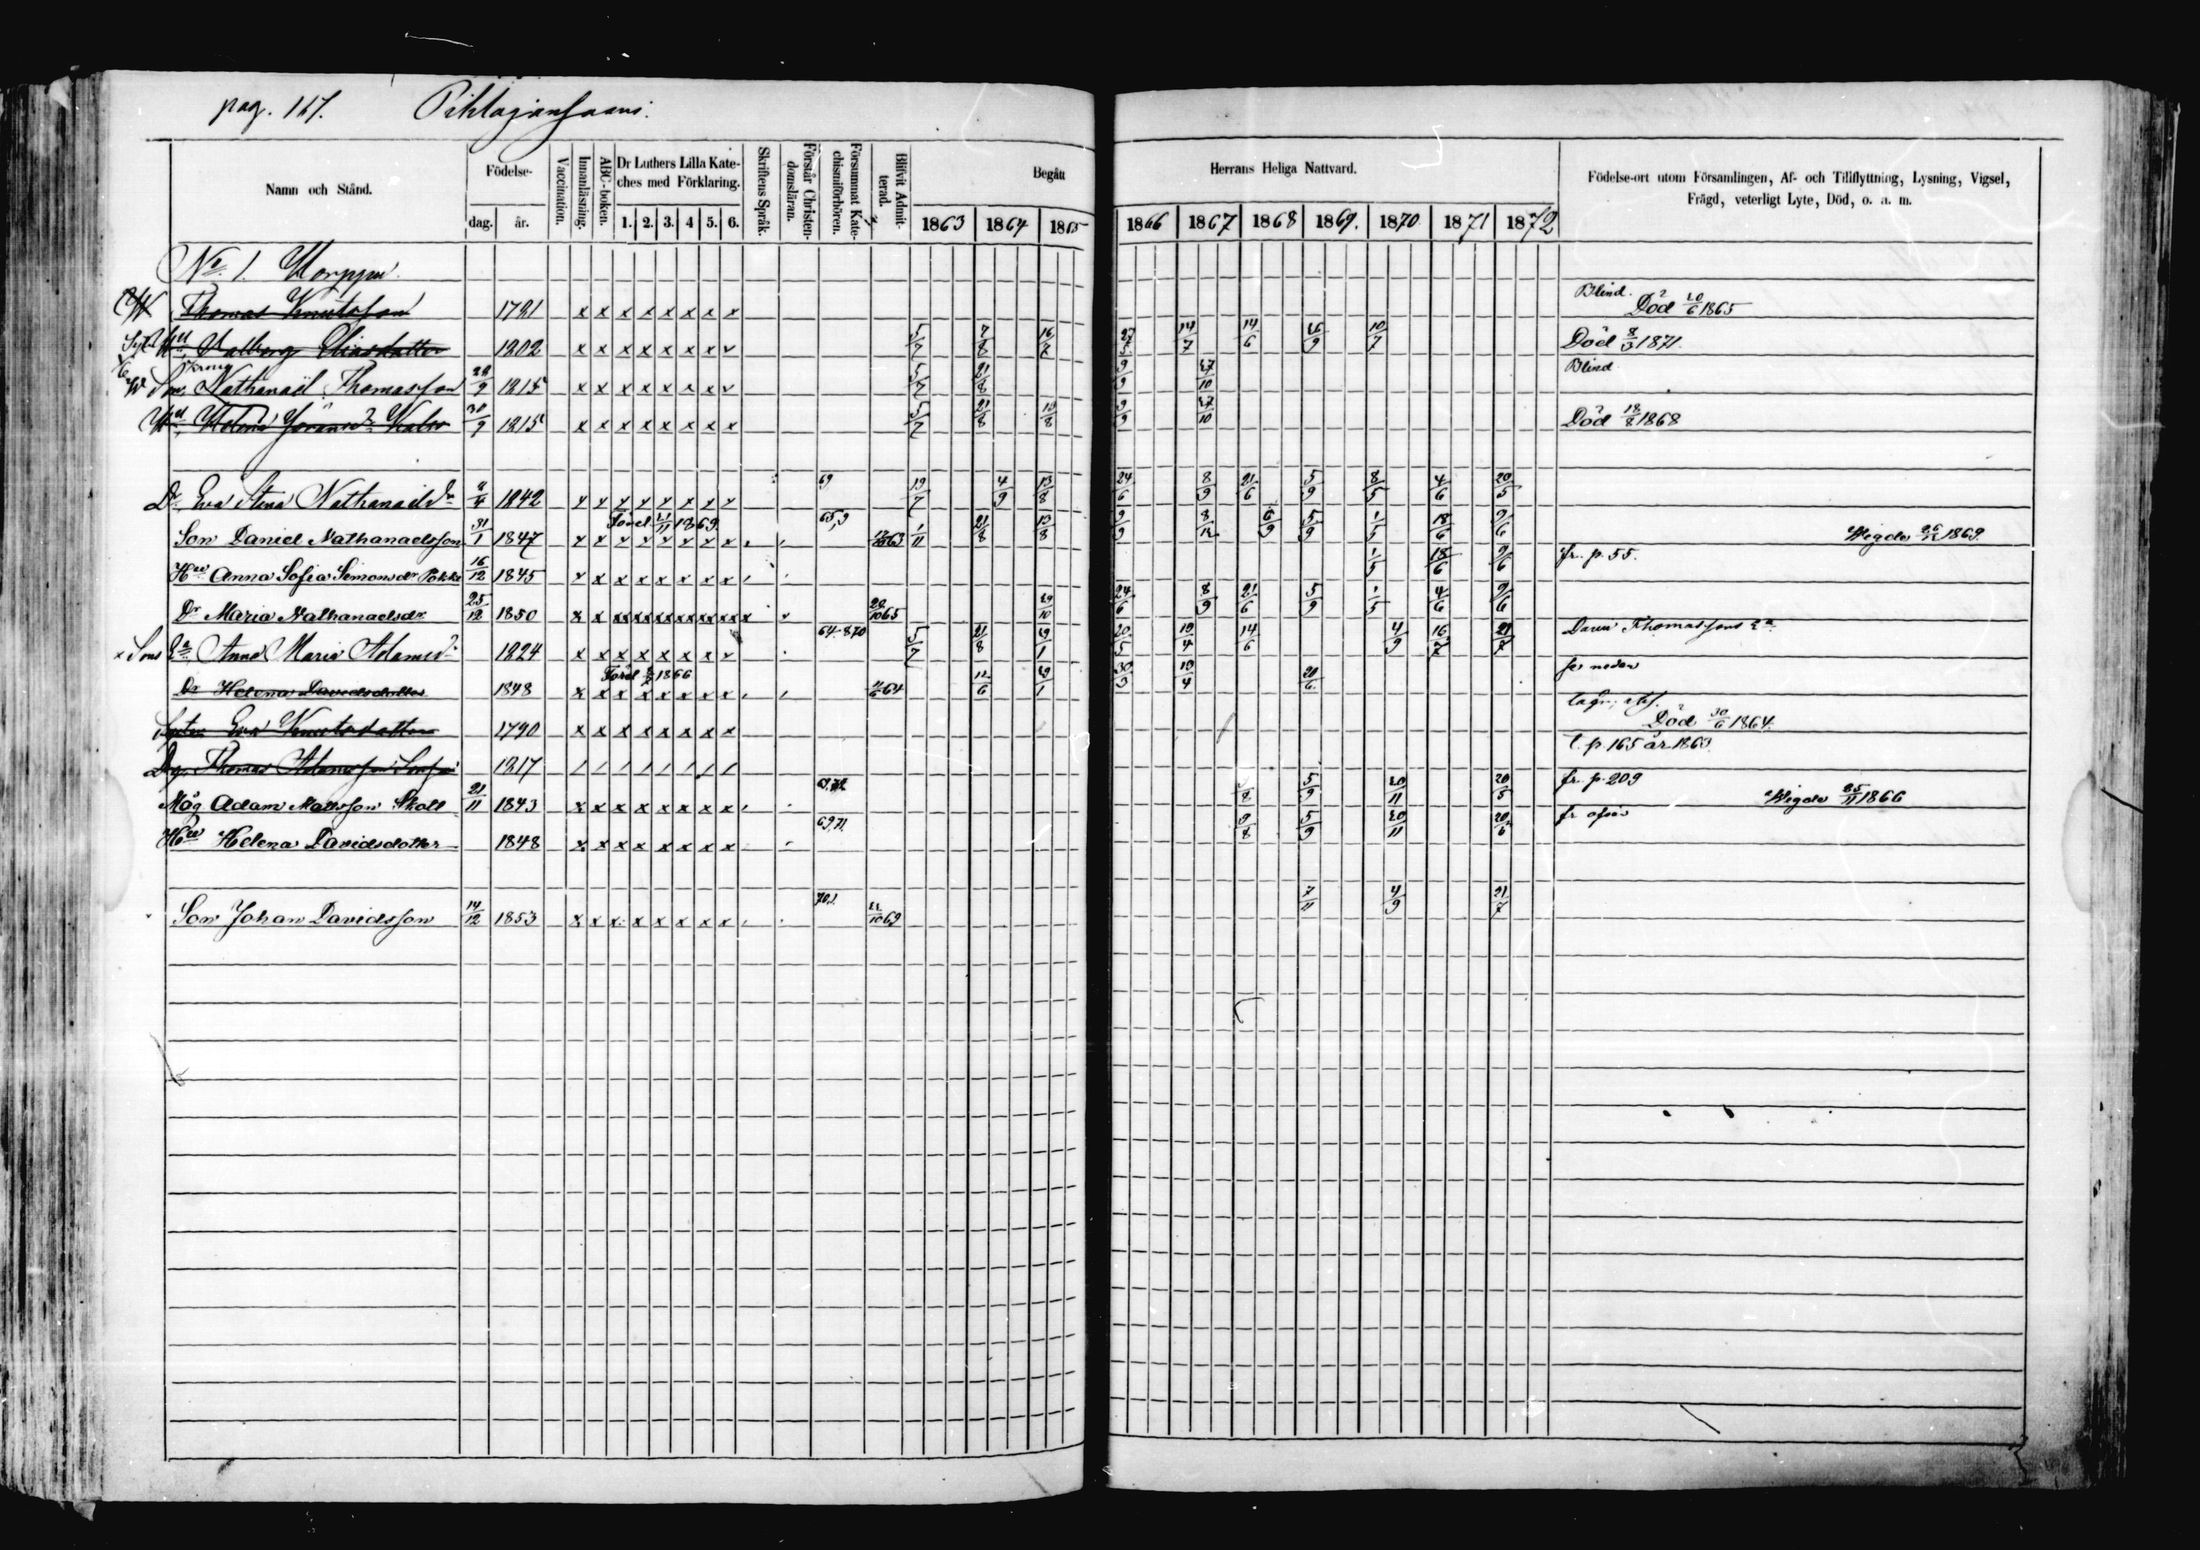 pag. 167.
Namn och Stånd. Födelse- dag. år. Vaccination. Innanläsning. ABC-boken. Dr Luthers Lilla Kate- ches med Förklaring. 1. 2. 3. 4 5. 6. Skriftens Språk. Förstår Christen- domsläran. Försummat Kate- chismiförhören. Blifvit Admit- terad. Begått 1863 1864 1865 Herrans Heliga Nattvard. 1866 1867 1868 1869. 1870. 1871 1872 Födelse-ort utom Församlingen, Af- och Tillflyttning, Lysning, Vigsel, Frägd, veterligt Lyte, Död, o. a. m.
No 1.
Thomas Knutsson 1781 x x x x x x x x Blind. Död 20/6 1865
Walborg Eliasdotter 1802 x x x x x x x v 5/7 7/8 16/7 27/5 14/7 14/6 26/9 10/7 Död 8/3 1871.
Son Nathanaël Thomasson 22/9 1815 x x x x x x x v 5/7 21/8 9/9 27/10 Blind
Helena Göransdr 30/9 1815 x x x x x x x x 5/7 21/8 13/8 9/9 27/10 Död 18/8 1868
Dr Eva Stina Nathanaelsdr 1842 x x x x x x x x 69 19/7 4/9 13/8 24/6 8/9 21/6 5/9 8/5 4/6 20/5
Son Daniel Nathanaelsson 31/1 1847 x x x x x x x x Förel. 21/11 1869. 65,9 63 1/11 21/8 13/8 9/9 8/12 6/9 5/9 1/5 18/6 9/6 Wigde 1869.
Hu Anna Sofia Simonsdr 16/12 1845 x x x x x x x x 1/5 18/6 9/6 fr. p. 55.
Dr Maria Nathanaelsdr 25/12 1850 29/10 65 29/10 24/6 8/9 21/6 5/9 1/5 4/6 9/6
Sons Ea Anna Maria Adamsdr 1824 x x x x x x x v 64-870 5/7 21/8 29/1 20/5 19/4 14/6 4/9 16/7 21/7 David Thomassons Ea
Dr Helena Davidsdotter 1848 x x x x x x x x Förel 1866 64 12/6 29/1 30/3 19/4 20/6 se nedan
Syster Eva Knutsdotter 1790 x x x x x x x x Död 30/6 1864.
Drg. Thomas Adamsson 1817 / / / / / / / / t. p. 165 år 1863.
Måg Adam Mattsson Skott 21/11 1843 x x x x x x x x 9/8 5/9 20/11 20/5 fr. p. 209 Wigde 25/11 1866
Hu Helena Davidsdotter 1848 x x x x x x x x 69,71. 9/8 5/9 20/11 20/5 fr ofvan
Son Johan Davidsson 14/12 1853 x x x x x x x x 70,1. 69 7/11 4/9 21/7